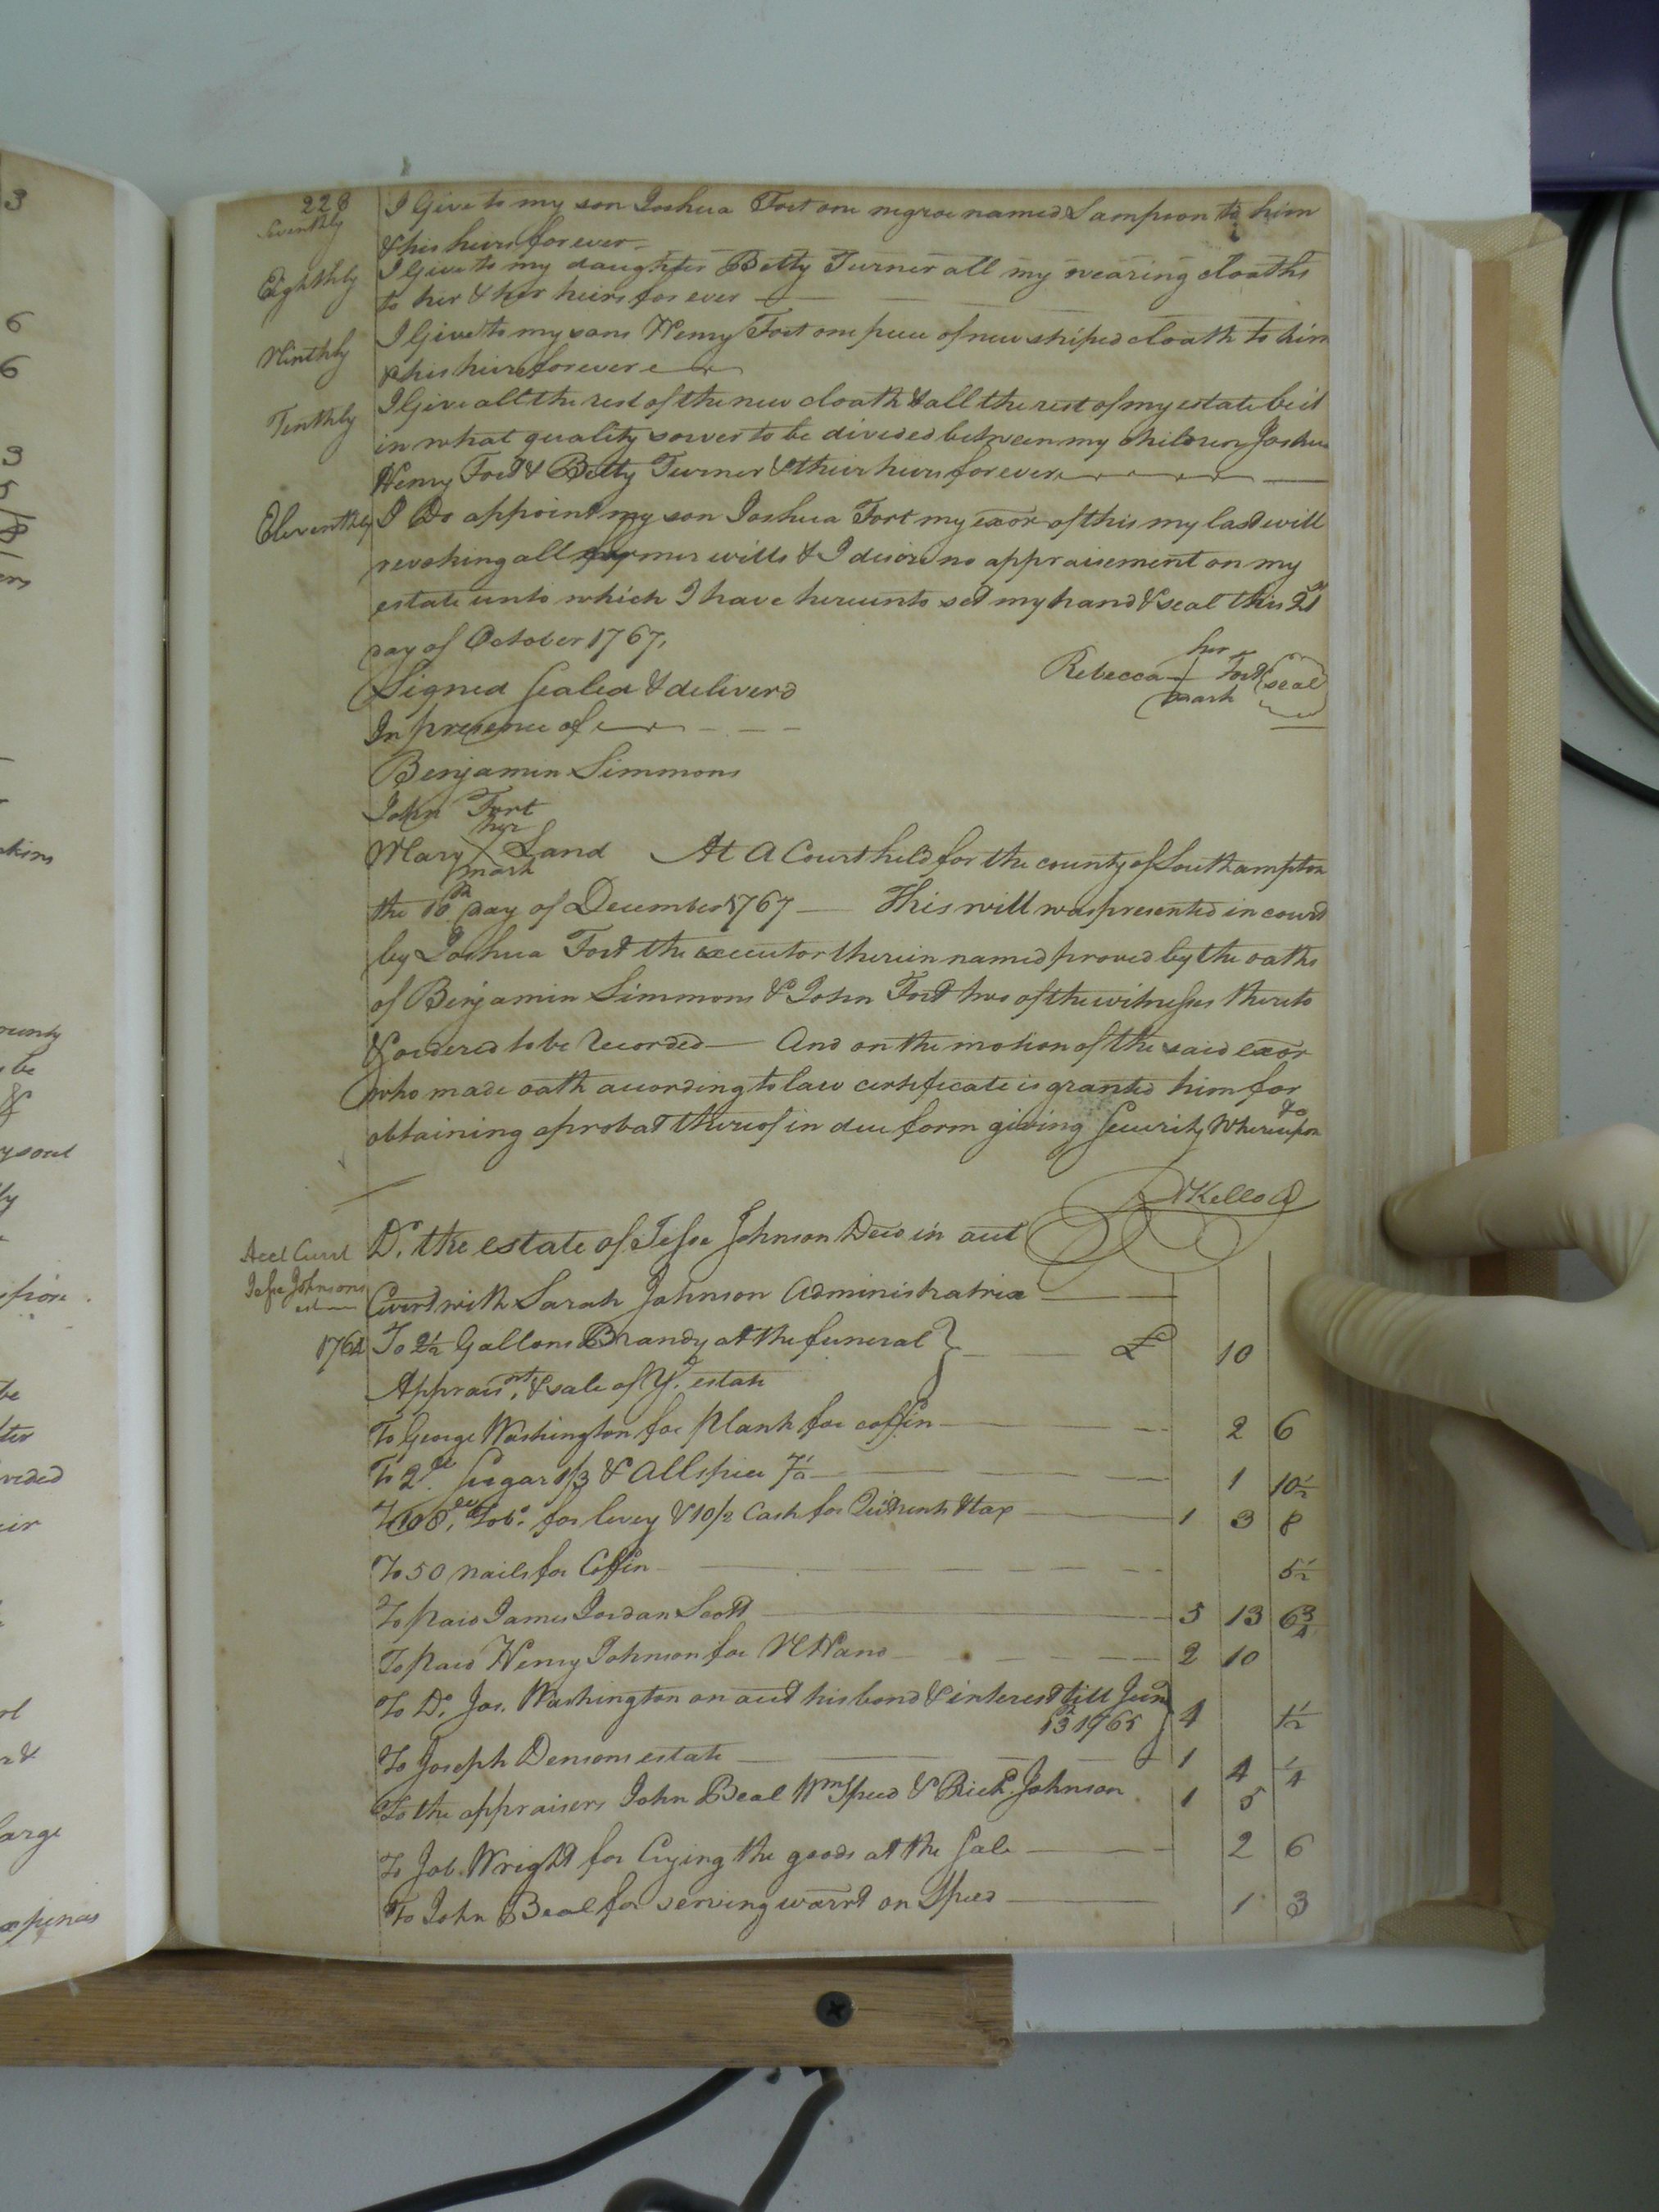 228
Seventhly I Give to my son Joshua Fort one negroe named Sampson to him
& his heirs forever
Eighthly I Give to my daughter Betty Turner all my wearing cloaths
to her & her heirs for ever
Ninthly I Give to my sons Henry Fort one piece of new striped cloath to him
& his heirs forever
Tenthly I Give all the rest of the new cloath & all the rest of my estate be it
in what quality soever to be divided between my children Joshua
Henry Fort & Betty Turner & their heirs forever
Eleventhly I Do appoint my son Joshua Fort my exor of this my last will
revoking all former wills & I desire no appraisement on my
estate unto which I have hereunto set my hand & seal this 21st
day of October 1767,
Signed Sealed & deliverd
her
Rebecca + Fort (seal)
mark
In presence of
Benjamin Simmons
John Fort
her
Mary X Land At A Court held for the county of Southampton
mark
the 10th day of December 1767 — This will was presented in court
by Joshua Fort the executor therein named proved by the oaths
of Benjamin Simmons & John Fort two of the witnesses thereto
& ordered to be Recorded — And on the motion of the said exor
who made oath according to law certificate is granted him for
obtaining a probat thereof in due form giving Security Whereupon &c
RKello
Acct Currt
Jesse Johnsons
est
Dr. the estate of Jesse Johnson Decd in acct
Currt with Sarah Johnson Administratrix
1764 To 2½ Gallons Brandy at the funeral } £ 10
Appraismt. & sale of Yr. estate
To George Washington for Plank for coffin 2 6
To 2 lb Sugar 1/3 & Allspice 7½ 1 10½
To 108 lb Tobo. for levy & 10/2 Cash for Quitrents & tax 1 3 8
To 50 nails for Coffin 5½
To paid James Jordan Scott 5 13 6¾
To paid Henry Johnson for N Hand 2 10
To Do. Jas. Washington on acct his bond & interest till Jund
13 1765 } 4 1½
To Joseph Densons estate 1 4 ¼
To the appraisers John Beal Wm Speed & Richd. Johnson 1 5
To Job. Wright for Crying the goods at the Sale 2 6
To John Beal for serving warrt on Speed 1 3